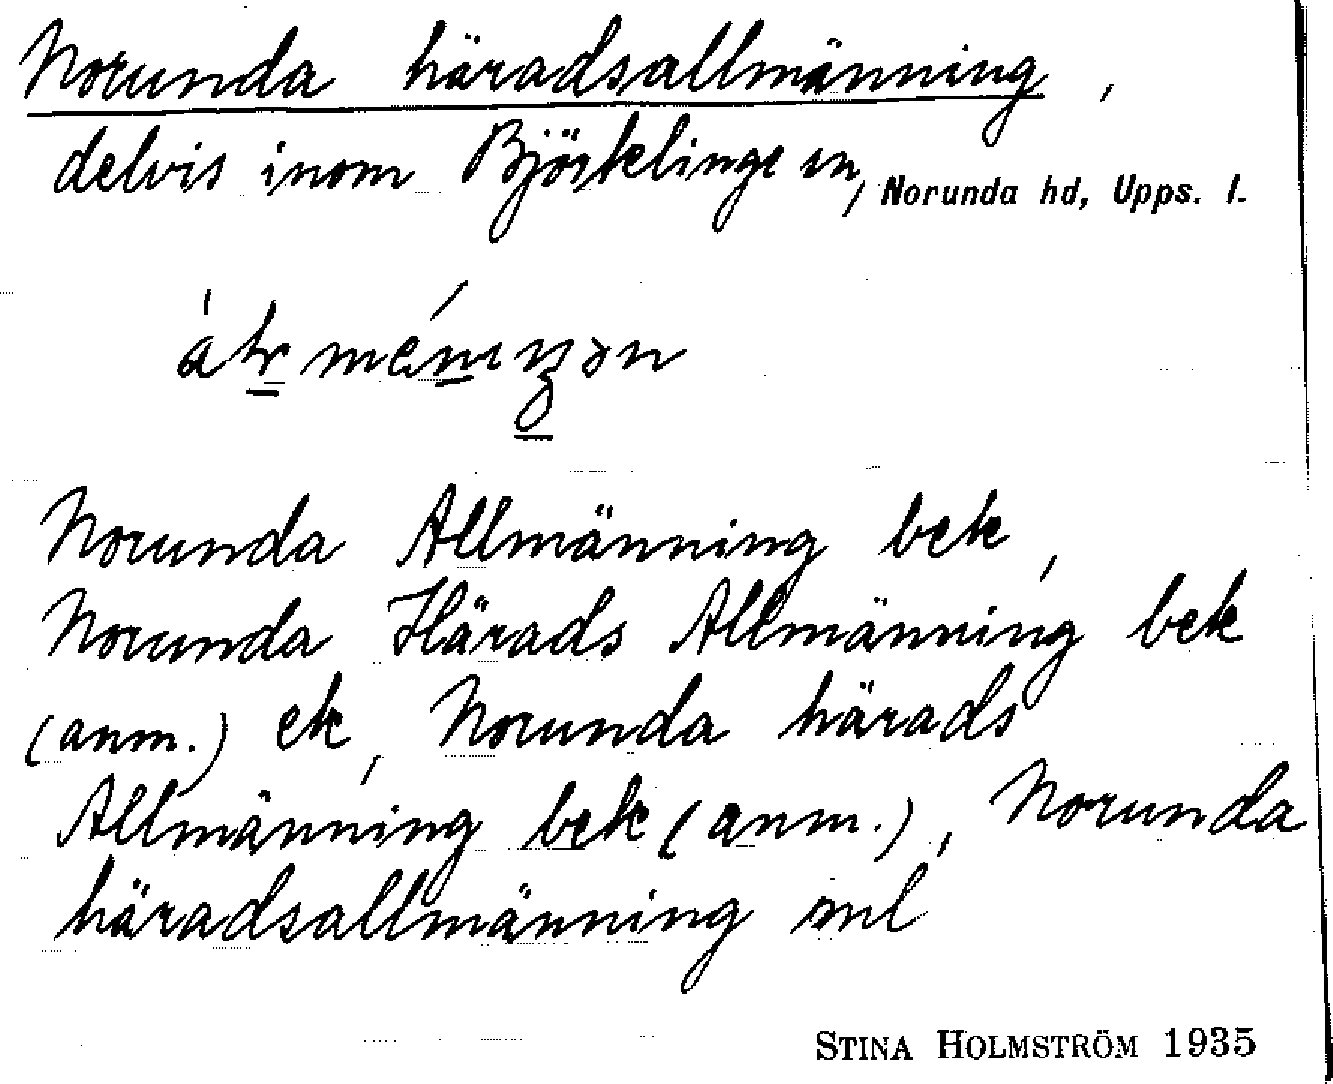 Norunda häradsallmänning,
delvis inom Björklinge sn, Norunda hd, Upps. l.
Norunda Allmänning bek,
Norunda Härads Allmänning bek
(anm.) ek, Norunda härads
Allmänning bek (anm.), Norunda
häradsallmänning
STINA HOLMSTRÖM 1935